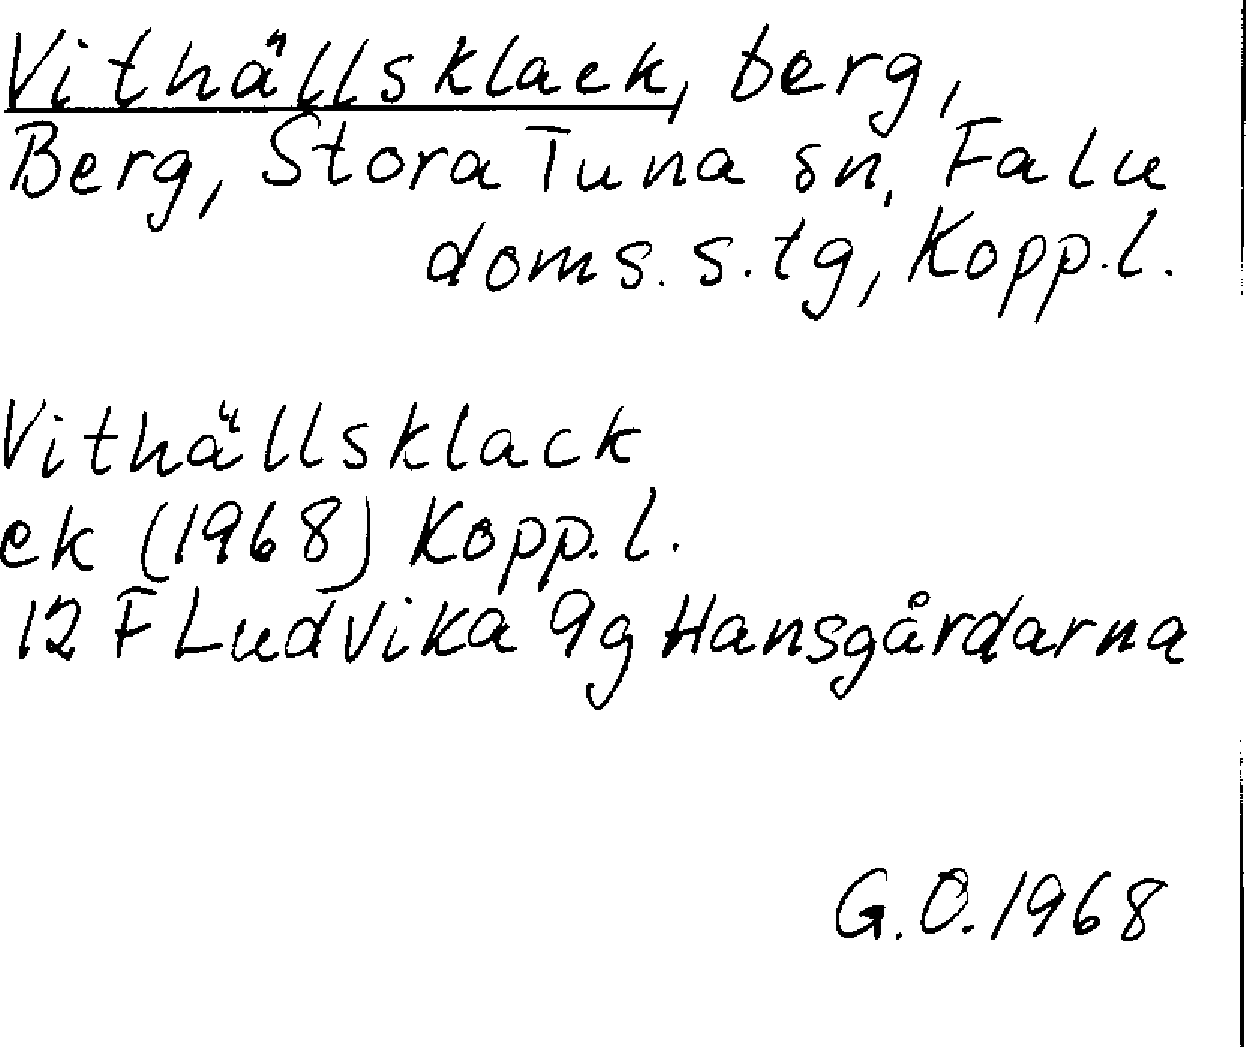 Vithällsklack, berg,
Berg, Stora Tuna sn, Falu
doms. s. tg, Kopp. l.
Vithällsklack
ek (1968) Kopp. l.
12 F Ludvika 9g Hansgårdarna
G.O. 1968